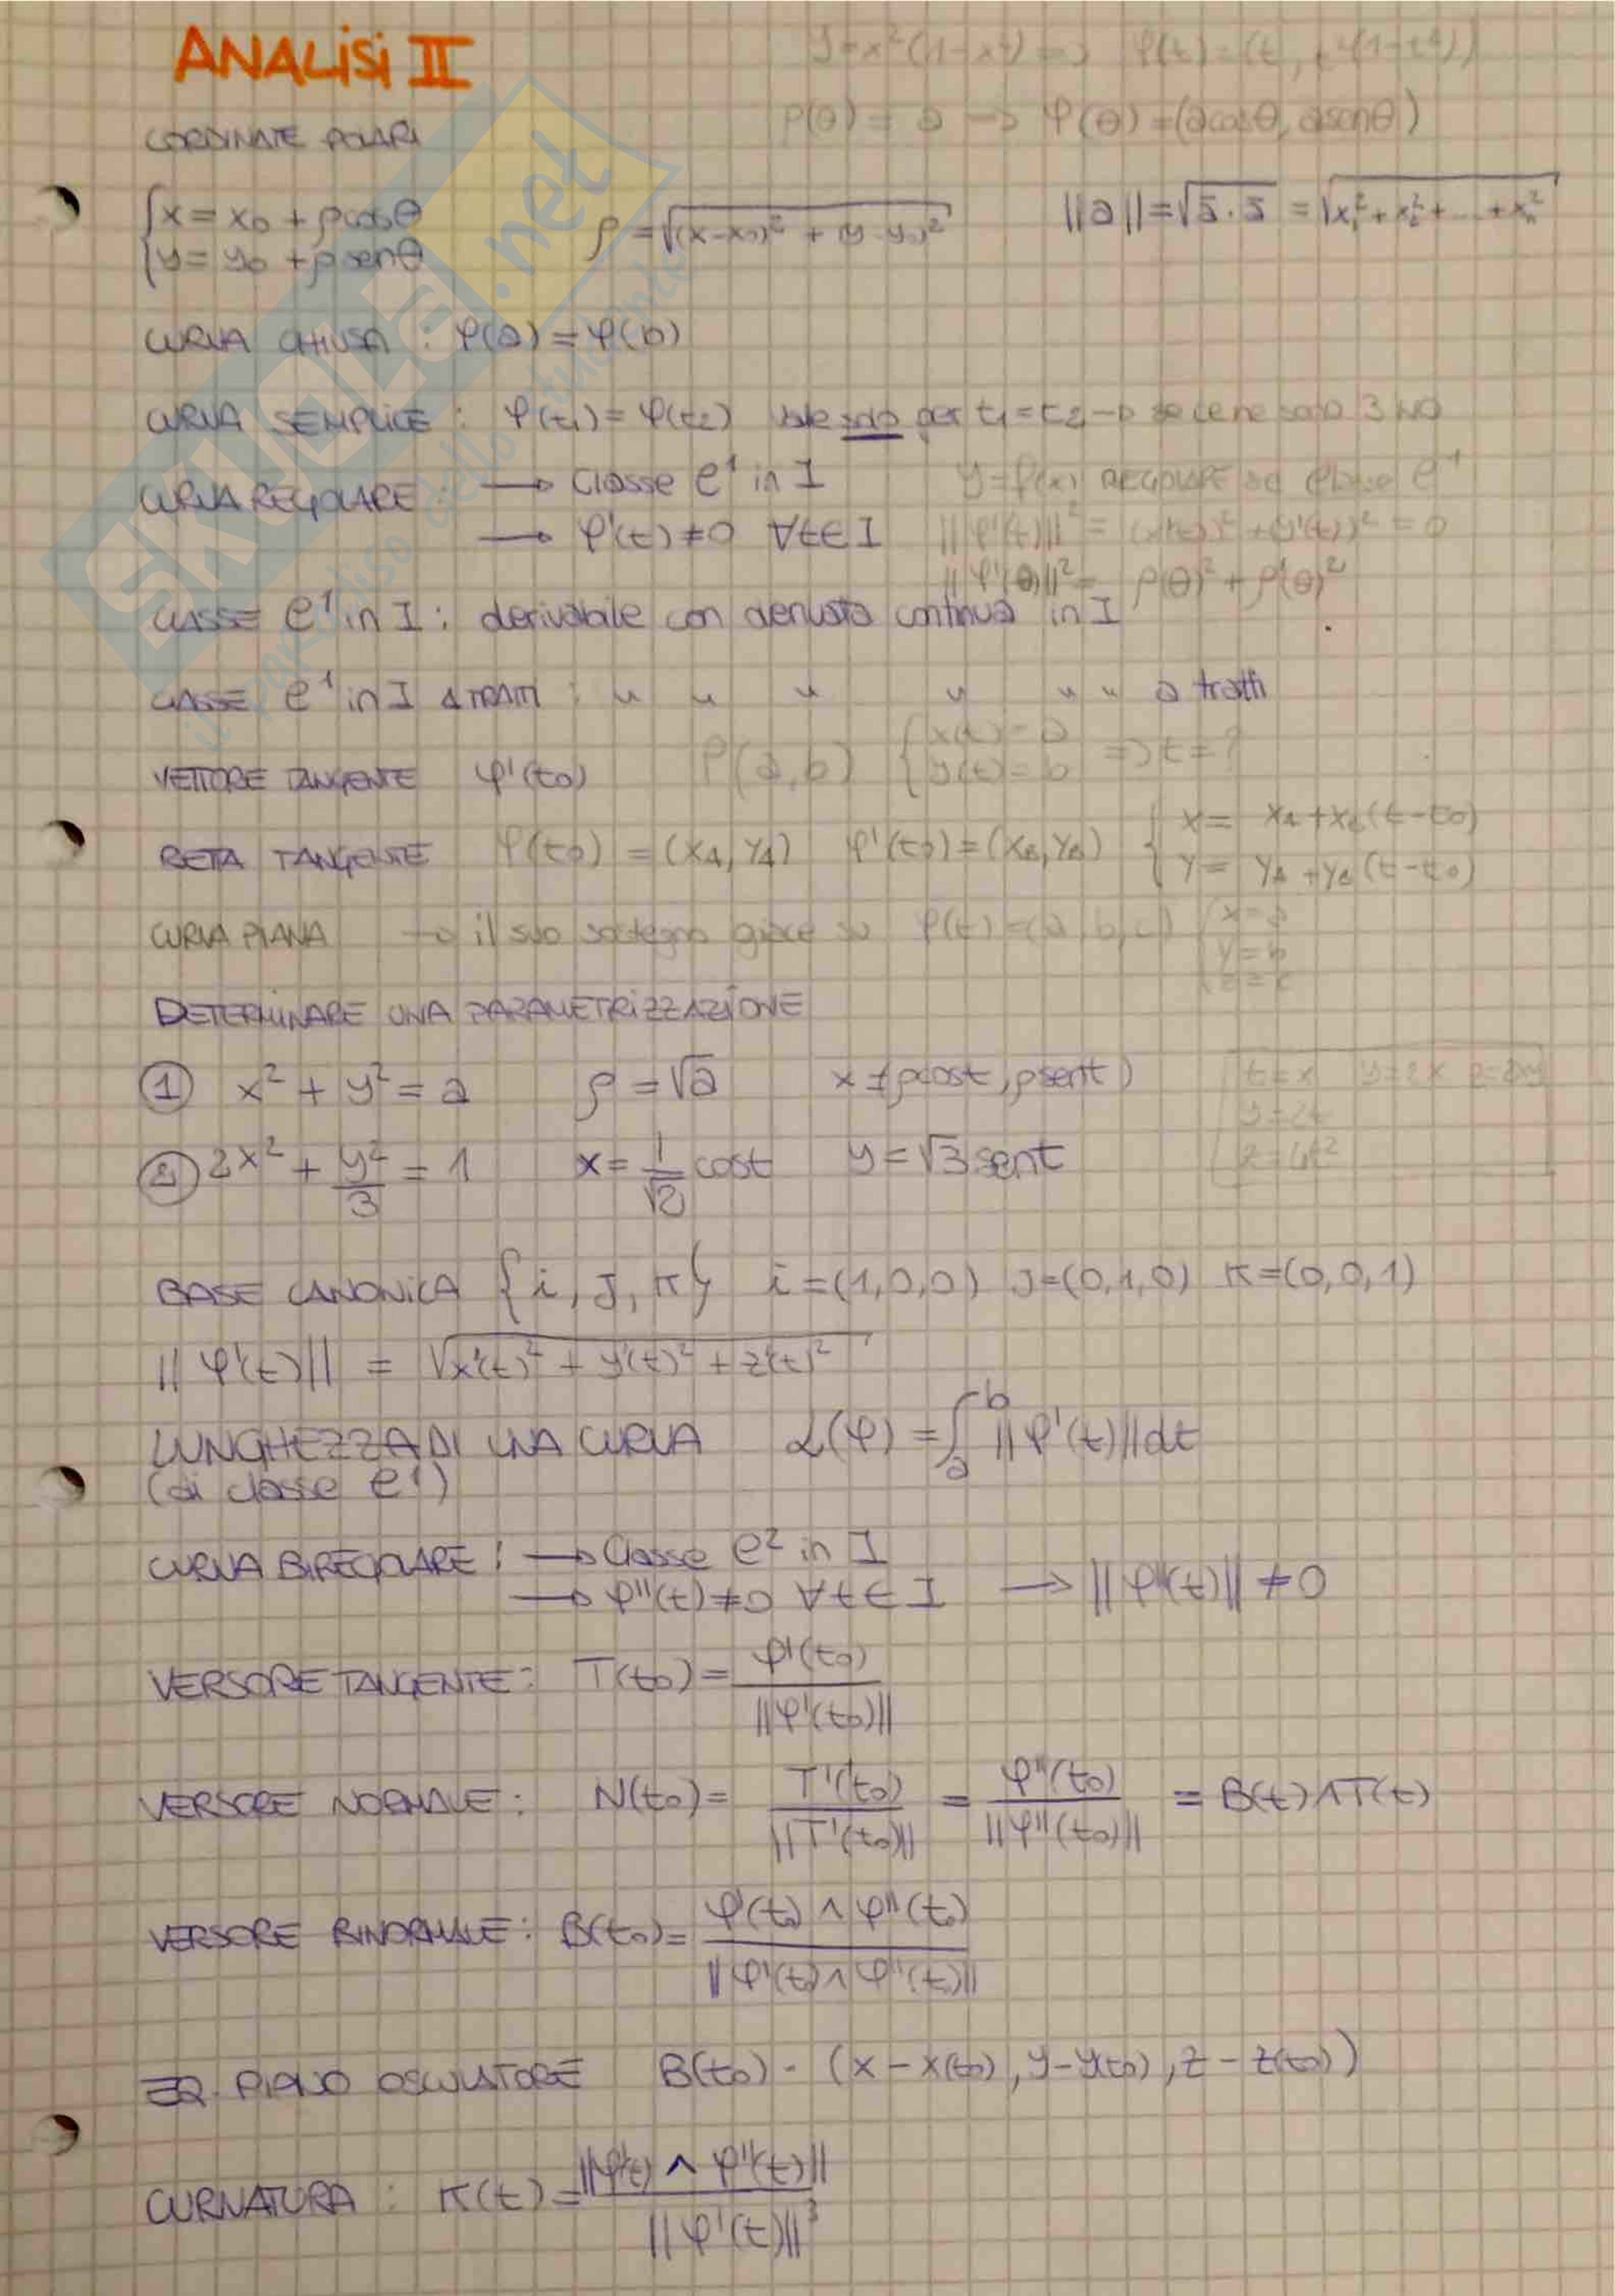 ANALISI II
y=x²(1-x²) => φ(t)=(t, t²(1-t²))
ρ(θ) = a -> φ(θ)=(acosθ, asenθ)
CORDINATE POLARI
{x = x₀ + ρcosθ
{y = y₀ + ρsenθ
ρ = √(x-x₀)² + (y-y₀)²
||a|| = √a·a = √x₁²+x₂²+...+xₙ²
CURVA CHIUSA : φ(a) = φ(b)
CURVA SEMPLICE : φ(t₁) = φ(t₂) vale solo per t₁=t₂ -> se ce ne sono 3 NO
CURVA REGOLARE : → Classe C¹ in I y=f(x) REGOLARE se classe C¹
→ φ'(t) ≠ 0 ∀t∈I ||φ'(t)||² = (x'(t))² + (y'(t))² = 0
||φ'(θ)||² = ρ(θ)² + ρ'(θ)²
CLASSE C¹ in I : derivabile con derivata continua in I
CLASSE C¹ in I A TRATTI : " " " " " " a tratti
VETTORE TANGENTE φ'(t₀) P(a,b) {x(t)=a y(t)=b => t=?
RETA TANGENTE φ(t₀) = (x_A, y_A) φ'(t₀) = (x_B, y_B) {x = x_A + x_B(t-t₀)
{y = y_A + y_B(t-t₀)
CURVA PIANA → il suo sostegno giace su φ(t)=(a,b,c) {x=a
y=b
z=c
DETERMINARE UNA PARAMETRIZZAZIONE
① x² + y² = a ρ = √a x = (ρcost, ρsent)
t=x y=2x z=2xy
y=2t
z=4t²
② 2x² + y²/3 = 1 x = 1/√2 cost y = √3 sent
BASE CANONICA {i, J, K} i=(1,0,0) J=(0,1,0) K=(0,0,1)
||φ'(t)|| = √x'(t)² + y'(t)² + z'(t)²
LUNGHEZZA DI UNA CURVA L(φ) = ∫ₐᵇ ||φ'(t)||dt
(di classe C¹)
CURVA BIREGOLARE : → Classe C² in I
→ φ''(t) ≠ 0 ∀t∈I → ||φ''(t)|| ≠ 0
VERSORE TANGENTE : T(t₀) = φ'(t₀) / ||φ'(t₀)||
VERSORE NORMALE : N(t₀) = T'(t₀) / ||T'(t₀)|| = φ''(t₀) / ||φ''(t₀)|| = B(t)∧T(t)
VERSORE BINORMALE : B(t₀) = φ'(t₀) ∧ φ''(t₀) / ||φ'(t₀) ∧ φ''(t₀)||
EQ. PIANO OSCULATORE B(t₀) · (x - x(t₀), y - y(t₀), z - z(t₀))
CURVATURA : K(t) = ||φ'(t) ∧ φ''(t)|| / ||φ'(t)||³
SKUOLA.net
il paradiso dello studente